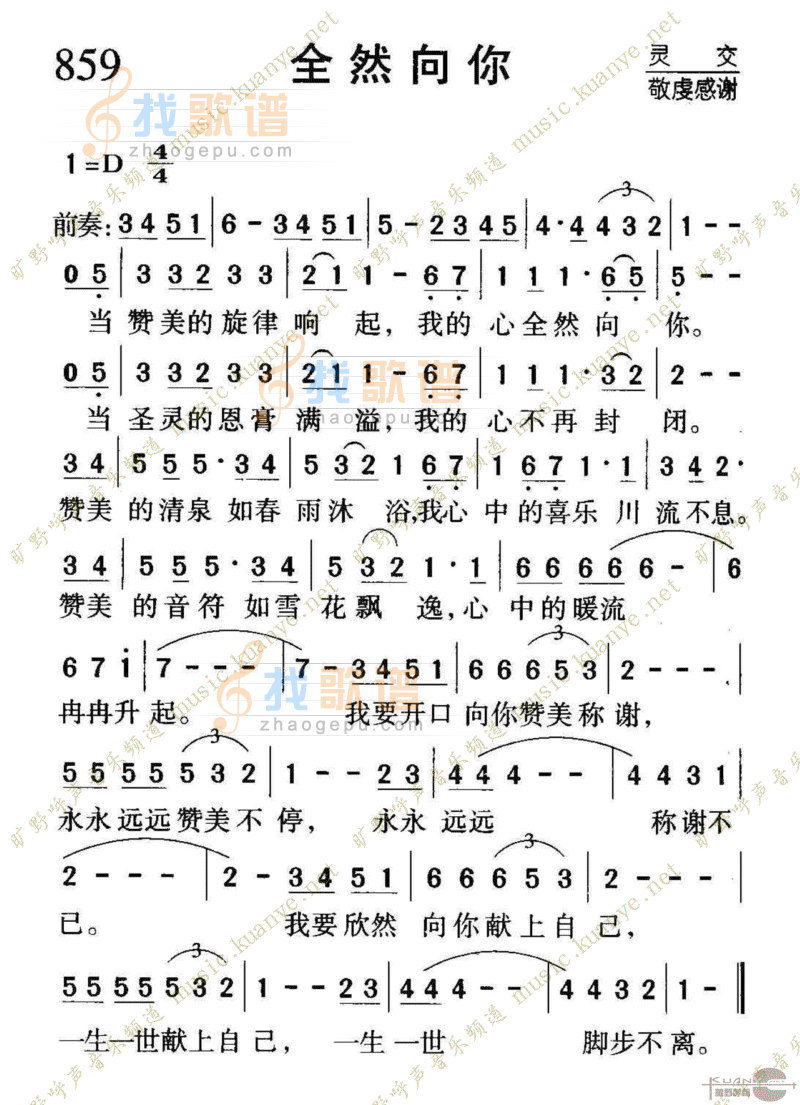 859 全然向你 灵 交
敬虔感谢
1=D 4/4
前奏: 3 4 5 1 | 6 - 3 4 5 1 | 5 - 2 3 4 5 | 4 · 4 4 3 2 | 1 - -
0 5 | 3 3 2 3 3 | 2 1 1 - 6 7 | 1 1 1 · 6 5 | 5 - -
当 赞美的旋律 响 起, 我的 心全然 向 你。
0 5 | 3 3 2 3 3 | 2 1 1 - 6 7 | 1 1 1 · 3 2 | 2 - -
当 圣灵的恩膏 满 溢, 我的 心不再 封 闭。
3 4 | 5 5 5 · 3 4 | 5 3 2 1 6 7 | 1 6 7 1 · 1 | 3 4 2 ·
赞美 的清泉 如春 雨沐 浴,我心 中的喜乐 川 流不息。
3 4 | 5 5 5 · 3 4 | 5 3 2 1 · 1 | 6 6 6 6 6 - | 6
赞美 的音符 如雪 花飘 逸,心 中的暖流
6 7 1 | 7 - - - | 7 - 3 4 5 1 | 6 6 6 6 5 3 | 2 - - - |
冉冉升 起。 我要开口 向你赞美称 谢,
5 5 5 5 5 5 3 2 | 1 - - 2 3 | 4 4 4 - - | 4 4 3 1 |
永永远远赞美不 停, 永永 远远 称谢不
2 - - - | 2 - 3 4 5 1 | 6 6 6 6 5 3 | 2 - - - |
已。 我要欣然 向你献上自 己,
5 5 5 5 5 5 3 2 | 1 - - 2 3 | 4 4 4 - - | 4 4 3 2 | 1 - ‖
一生一世献上自 己, 一生 一世 脚步不 离。
找歌谱
zhaogepu.com
找歌谱
zhaogepu.com
找歌谱
zhaogepu.com
旷野呼声音乐频道 music.kuanye.net